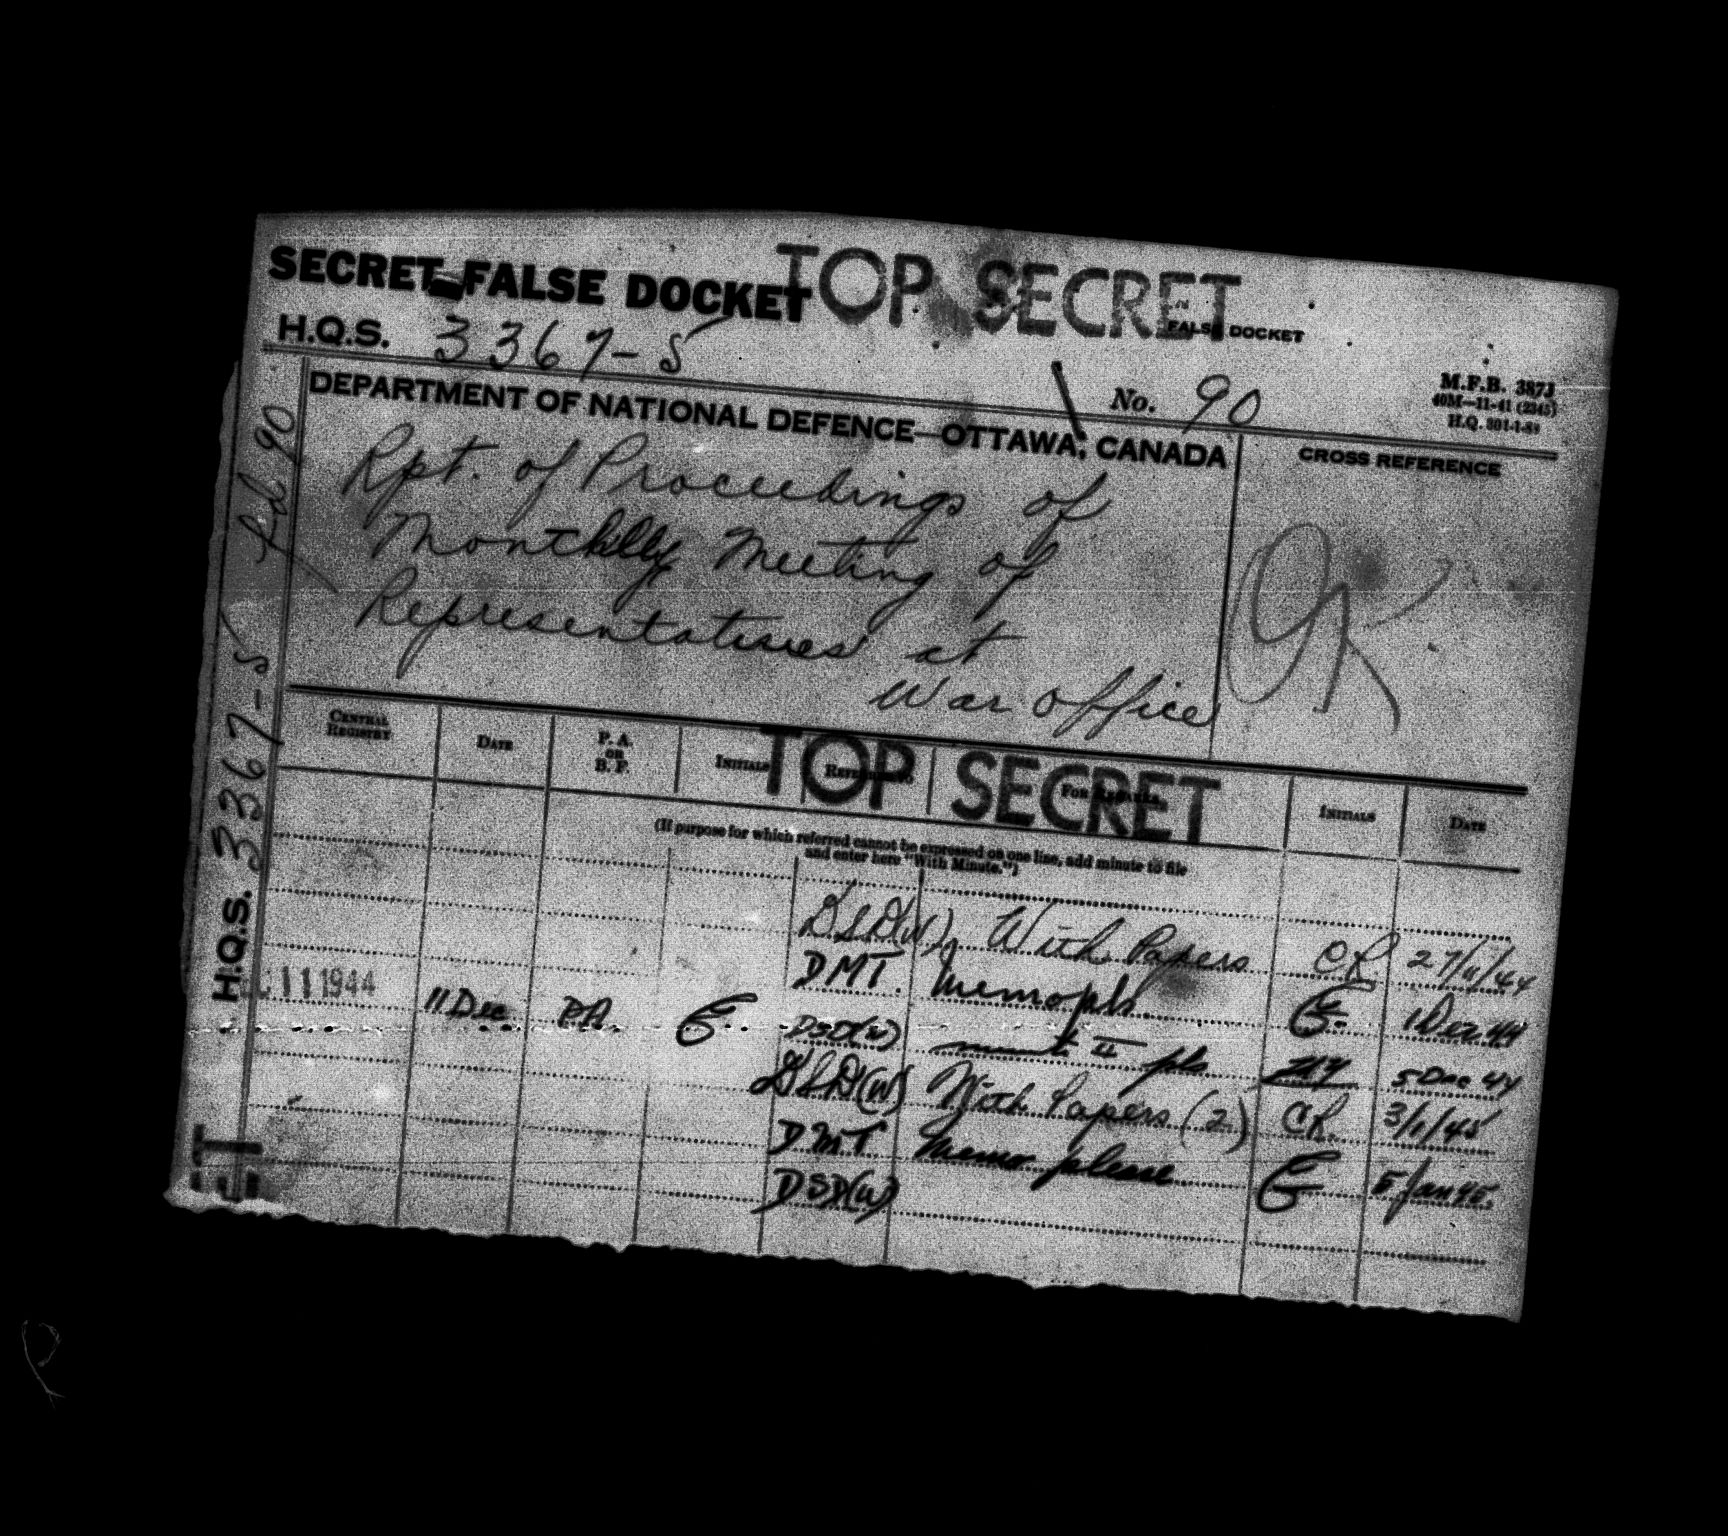 SECRET FALSE DOCKET
TOP SECRET
FALSE DOCKET
H.Q.S. 3367-5
No. 90
M.F.B. 387J
40M—11-41 (2345)
DEPARTMENT OF NATIONAL DEFENCE—OTTAWA, CANADA
CROSS REFERENCE
Rpt. of Proceedings of
Monthly Meeting of
Representatives at
War Office
H.Q.S. 3367-5 90
CENTRAL REGISTRY
DATE
P. A. OR B. F.
INITIALS
REFERRED TO
FOR REMARKS
INITIALS
DATE
TOP SECRET
(If purpose for which referred cannot be expressed on one line, add minute to file
and enter here "With Minute.")
DSD(W) With Papers CR 27/11/44
DMT. Memo pls. 1 Dec 44
11 1944 11 Dec PA
DSD(W) minute II pls 5 Dec 44
DSD(W) With Papers (2) CR 3/1/45
DMT Memo please 5 Jan 45.
DSD(W)
ET